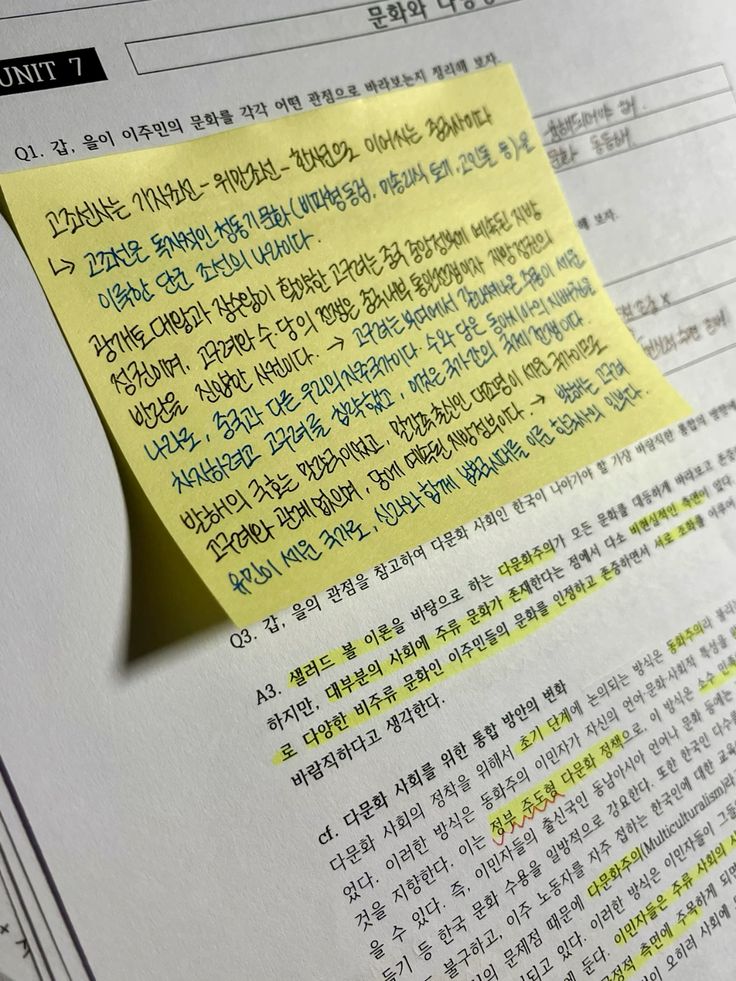 문화와 다양성
UNIT 7
Q1. 갑, 을이 이주민의 문화를 각각 어떤 관점으로 바라보는지 정리해 보자.
해 보자.
고조선사는 기자조선-위만조선-한사군으로 이어지는 중국사이다
↳ 고조선은 독자적인 청동기 문화(비파형동검, 미송리식 토기, 고인돌 등)을
이룩한 단군 조선의 나라이다.
광개토대왕과 장수왕이 활약한 고구려는 중국 중앙정부에 예속된 지방
정권이며, 고구려와 수·당의 전쟁은 중국내부 통일전쟁이자 지방정권의
반란을 진압한 사건이다. → 고구려는 부여에서 갈라져나온 주몽이 세운
나라로, 중국과 다른 우리의 자주국가이다. 수와 당은 동아시아의 지배권을
차지하려고 고구려를 침략했고, 이것은 국가간의 국제 전쟁이다.
발해의 국호는 말갈국이었고, 말갈족 출신인 대조영이 세운 국가이므로
고구려와 관계 없으며, 당에 예속된 지방정부이다. → 발해는 고구려
유민이 세운 국가로, 신라와 함께 남북국시대를 이룬 한국사의 일부다.
Q3. 갑, 을의 관점을 참고하여 다문화 사회인 한국이 나아가야 할 가장 바람직한 통합의 방안에
A3. 샐러드 볼 이론을 바탕으로 하는 다문화주의가 모든 문화를 대등하게 바라보고 존중
하지만, 대부분의 사회에 주류 문화가 존재한다는 점에서 다소 비현실적인 측면이 있다.
로 다양한 비주류 문화인 이주민들의 문화를 인정하고 존중하면서 서로 조화를 이루어
바람직하다고 생각한다.
cf. 다문화 사회를 위한 통합 방안의 변화
다문화 사회의 정착을 위해서 초기 단계에 논의되는 방식은 동화주의라 불리
었다. 이러한 방식은 동화주의 이민자가 자신의 언어·문화·사회적 특성을
것을 지향한다. 이는 정부 주도형 다문화 정책으로, 이 방식은 소수 민족
을 수 있다. 즉, 이민자들의 출신국인 동남아시아 언어나 문화 등에는
들기 등 한국 문화 수용을 일방적으로 강요한다. 또한 한국인 다수
불구하고, 이주 노동자를 자주 접하는 한국인에 대한 교육
의 문제점 때문에 다문화주의(Multiculturalism)라
되고 있다. 이러한 방식은 이민자들이 그들
에 둔다. 이민자들은 주류 사회의 사
긍정적 측면에 주목하게 되면
이 오히려 사회에